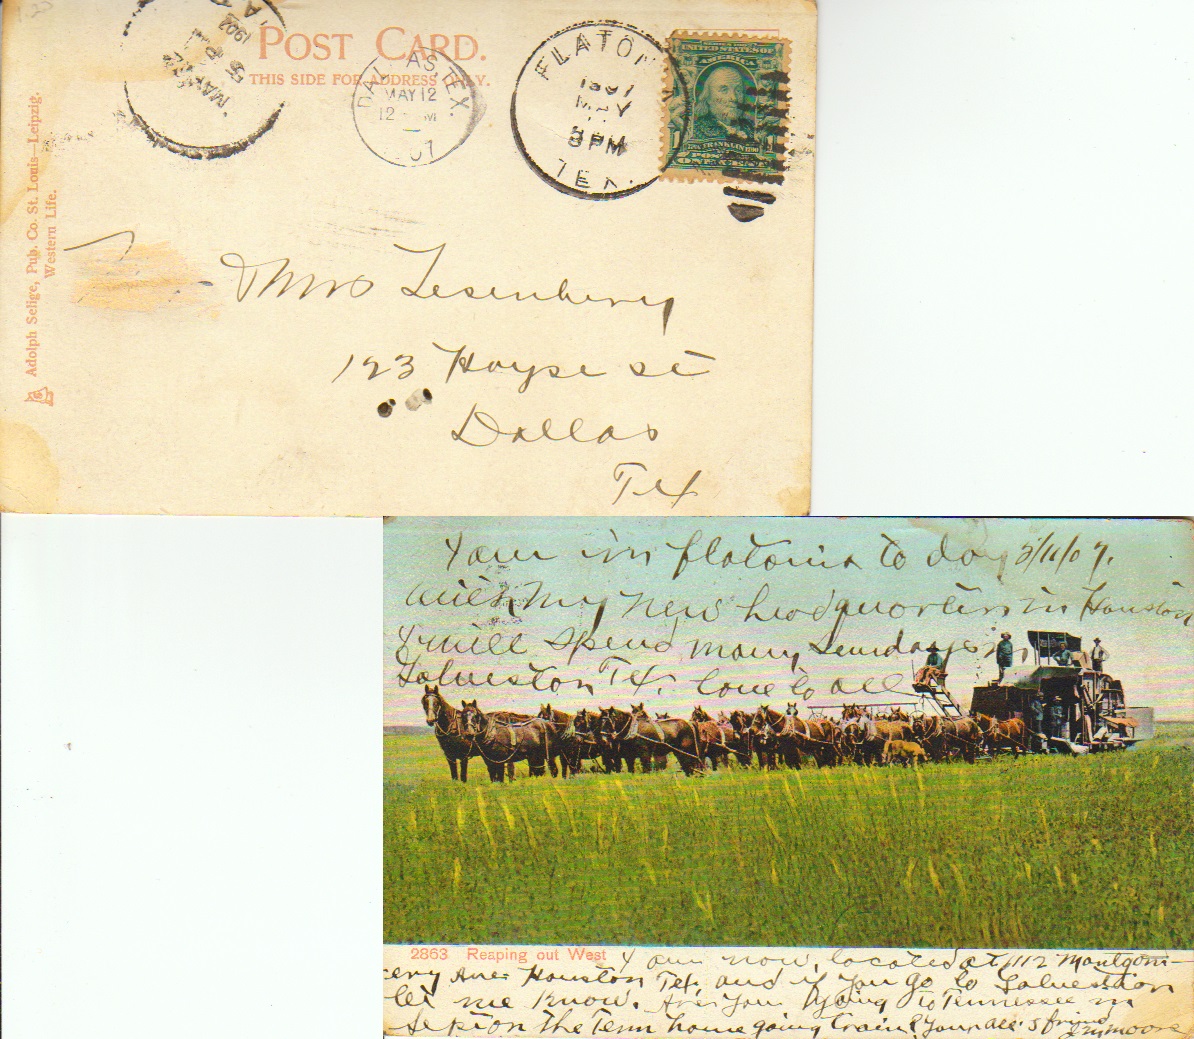 POST CARD.
THIS SIDE FOR ADDRESS ONLY.
DALLAS TEX.
MAY 12
07
FLATONIA
1907
MAY
8 PM
TEX.
UNITED STATES OF AMERICA
FRANKLIN
POSTAGE
ONE CENT
Adolph Selige, Pub. Co. St. Louis—Leipzig.
Western Life.
Mrs Lesenberry
123 Hoype st
Dallas
Tex
I am in flatonia to day 5/11/07.
with my new headquarters in Houston
I will spend many Sundays in
Galveston Tex. love to all
2863 Reaping out West
I am now, located at 1112 Montgom-
ery Ave Houston Tex, and if you go to Galveston
let me know. Are you going to Tennessee in
Sep on the Tenn home going train? Your all's friend
Moore